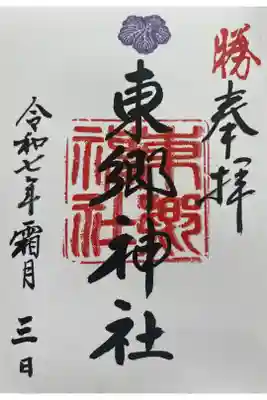 勝
奉拝
東郷神社
東郷神社
令和七年霜月三日